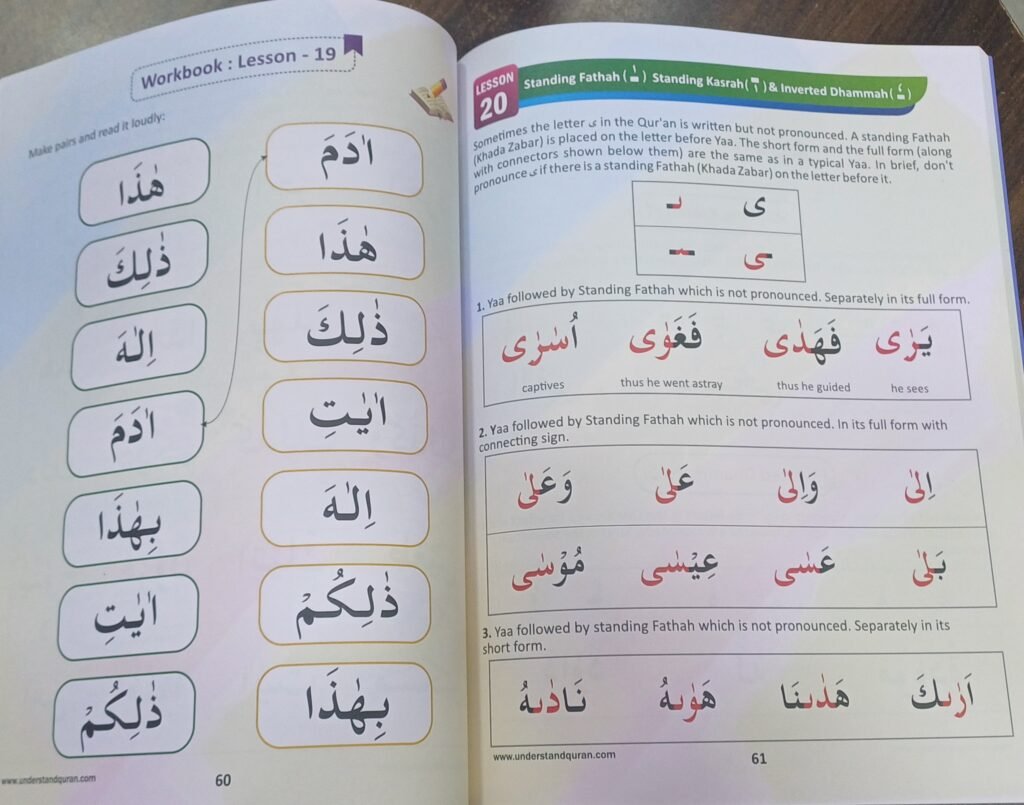 Workbook : Lesson - 19
Make pairs and read it loudly:
هٰذَا
ذٰلِكَ
اِلٰهَ
اٰدَمَ
بِهٰذَا
اٰيٰتِ
ذٰلِكُمْ
اٰدَمَ
هٰذَا
ذٰلِكَ
اٰيٰتِ
اِلٰهَ
ذٰلِكُمْ
بِهٰذَا
www.understandquran.com
60
LESSON
20
Standing Fathah ( ـٰ ) Standing Kasrah ( ـٖ ) & Inverted Dhammah ( ـٗ )
Sometimes the letter ى in the Qur'an is written but not pronounced. A standing Fathah
(Khada Zabar) is placed on the letter before Yaa. The short form and the full form (along
with connectors shown below them) are the same as in a typical Yaa. In brief, don't
pronounce ى if there is a standing Fathah (Khada Zabar) on the letter before it.
ى ىـ
ـى ـىـ
1. Yaa followed by Standing Fathah which is not pronounced. Separately in its full form.
يَرٰى فَهَدٰى فَغَوٰى اُسٰرٰى
he sees thus he guided thus he went astray captives
2. Yaa followed by Standing Fathah which is not pronounced. In its full form with
connecting sign.
اِلىٰ وَاِلىٰ عَلىٰ وَعَلىٰ
بَلىٰ عَسٰى عِيْسٰى مُوْسٰى
3. Yaa followed by standing Fathah which is not pronounced. Separately in its
short form.
اَرٰىكَ هَدٰىنَا هَوٰىهُ نَادٰىهُ
www.understandquran.com
61